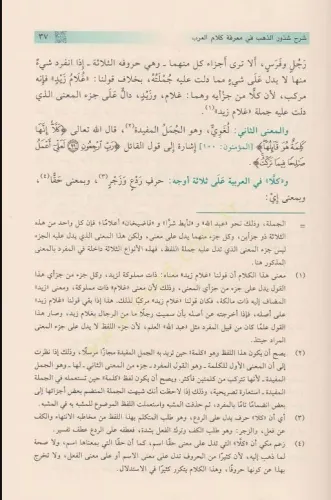 شرح شذور الذهب في معرفة كلام العرب ٣٧
رَجُلٍ وفَرَسٍ، ألا ترى أجزاء كل منهما ـ وهي حروفه الثلاثة ـ إذا انفرد شيءٌ
منها لا يدل عَلَى شيءٍ مما دلت عليه جُمْلَتُهُ، بخلاف قولنا: «غُلَامُ زَيْدٍ» فإنه
مركب، لأن كلًّا من جزأيه وهما: غلام، وزيد، دالٌّ على جزء المعنى الذي
دلت عليه جملة «غلام زيد»(١).
والمعنى الثاني: لُغَوِيٌّ، وهو الجُمَلُ المفيدة(٢)، قال الله تعالى ﴿كَلَّا إِنَّهَا
كَلِمَةٌ هُوَ قَائِلُهَا﴾ [المؤمنون: ١٠٠] إشارة إلى قول القائل ﴿رَبِّ ارْجِعُونِ ٩٩ لَعَلِّي أَعْمَلُ
صَالِحًا فِيمَا تَرَكْتُ﴾.
و«كلَّا» في العربية عَلَى ثلاثة أوجه: حرف رَدْعٍ وزَجْرٍ(٣)، وبمعنى حَقًّا(٤)،
وبمعنى إِيْ؛
= الجملة، وذلك نحو «عبد الله» و «تأبط شرًّا» و «قاضيخان» أعلامًا؛ فإن كل واحد من هذه
الثلاثة ذو جزأين، وكل جزء منهما يدل على معنى، ولكن هذا المعنى الذي يدل عليه الجزء
ليس جزء المعنى الذي تدل عليه جملة اللفظ، فهذه الأنواع الثلاثة داخلة في المفرد بالمعنى
المذكور هنا.
(١) معنى هذا الكلام أن قولنا «غلام زيد» معناه: ذات مملوكة لزيد، وكل جزء من جزأي هذا
القول يدل على جزء من جزأي المعنى، وذلك لأن «غلام» معناه ذات مملوكة، ومعنى «زيد»
المضاف إليه ذات مالكة، فكان قولنا «غلام زيد» مركبًا لذلك. هذا إذا بقي قولنا «غلام زيد»
على أصله، فإذا أخرجته عن أصله بأن سميت رجلًا من الرجال بغلام زيد، وصار هذا
القول علمًا كان من قبيل المفرد مثل «عبد الله» العلم، لأن جزء اللفظ لا يدل على جزء المعنى
المراد حينئذ.
(٢) يصح أن يكون هذا اللفظ وهو «كلمة» حين تريد به الجمل المفيدة مجازًا مرسلًا، وذلك إذا نظرت
إلى أن المعنى الأول للكلمة ـ وهو القول المفرد ـ جزء من المعنى الثاني ـ لها ـ وهو الجمل
المفيدة ـ لأنها تتركب من كلمتين فأكثر. ويصح أن يكون لفظ «كلمة» حين تستعمله في الجملة
المفيدة ـ استعارة تصريحية، وذلك إذا لاحظت أنك شبهت الجملة المنضم بعض أجزائها إلى
بعض انضمامًا تامًّا بالمفرد، ثم حذفت المشبه واستعملت اللفظ الموضوع للمشبه به في المشبه.
(٣) أي أن «كلا» حرف يدل على الردع، وهو طلب المتكلم بهذا اللفظ من مخاطبه الانتهاء والكف
عن فعل، والزجر: وهو طلب الكف وترك الفعل بشدة، فعطفه على الردع عطف تفسير.
(٤) زعم مكي أن «كلَّا» التي تدل على معنى حقًّا اسم، كما أن حقًّا التي بمعناها اسم، ولا صحة
لما ذهب إليه، لأن كثيرًا من الحروف تدل على معنى الاسم أو على معنى الفعل، ولا تخرج
بهذا عن كونها حروفًا، وهذا الكلام يتكرر كثيرًا في الاستدلال.